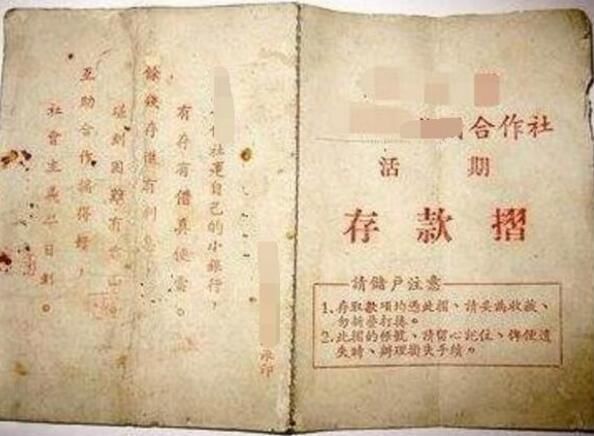 合作社
活期
存款摺
請儲户注意
1.存取款項均憑此摺、請妥為收藏、
勿摺叠打捲。
2.此摺的帳號、請留心記住、俾便遺
失時、辦理掛失手續。
社是自己的小銀行，
有存有借真便當。
餘錢存儲有利息，
碰到困難有靠山。
互助合作搞得好，
社會主義早日到。
承印